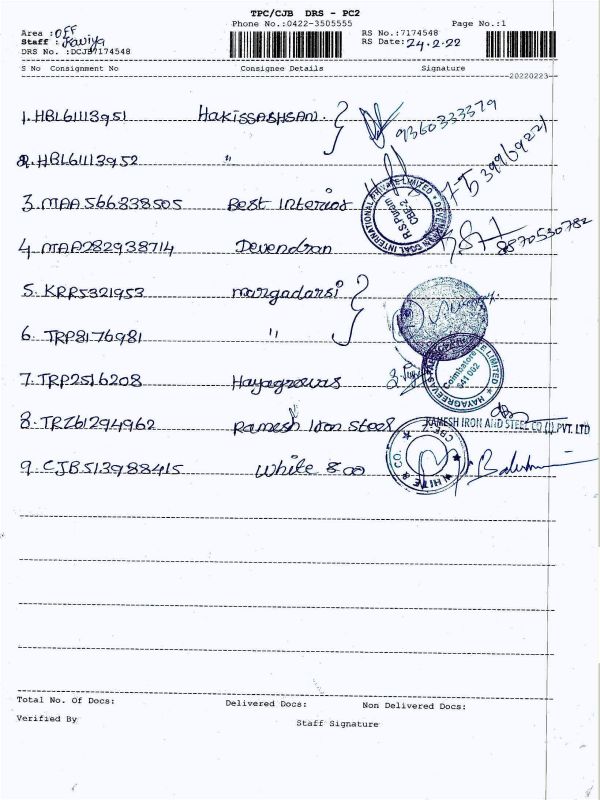 TPC/CJB DRS - PC2
Phone No.:0422-3505555 Page No.:1
Area : OFF
Staff : Kaviya
DRS No. :DCJB7174548
RS No.:7174548
RS Date: 24.2.22
S No Consignment No Consignee Details Signature
20220223
1. HBL61113951 HAKISSABHSAN. 9360333379
2. HBL61113952 "
3. MAA566338505 Best Interios
DEVENDRAN COAL INTERNATIONAL PRIVATE LIMITED
R.S.Puram
CBE-2
4. MAA282938714 Devendran 8870530782
5. KRR5321953 margadarsi
6. TRP8176981 "
7. TRP2516208 Hayagreevas
Coimbatore
641 002
8. TRZ61294962 Ramesh Iron Steel RAMESH IRON AND STEEL CO (I) PVT. LTD
9. CJB513988415 White & co
WHITE & CO. CBE-
Total No. Of Docs: Delivered Docs: Non Delivered Docs:
Verified By Staff Signature